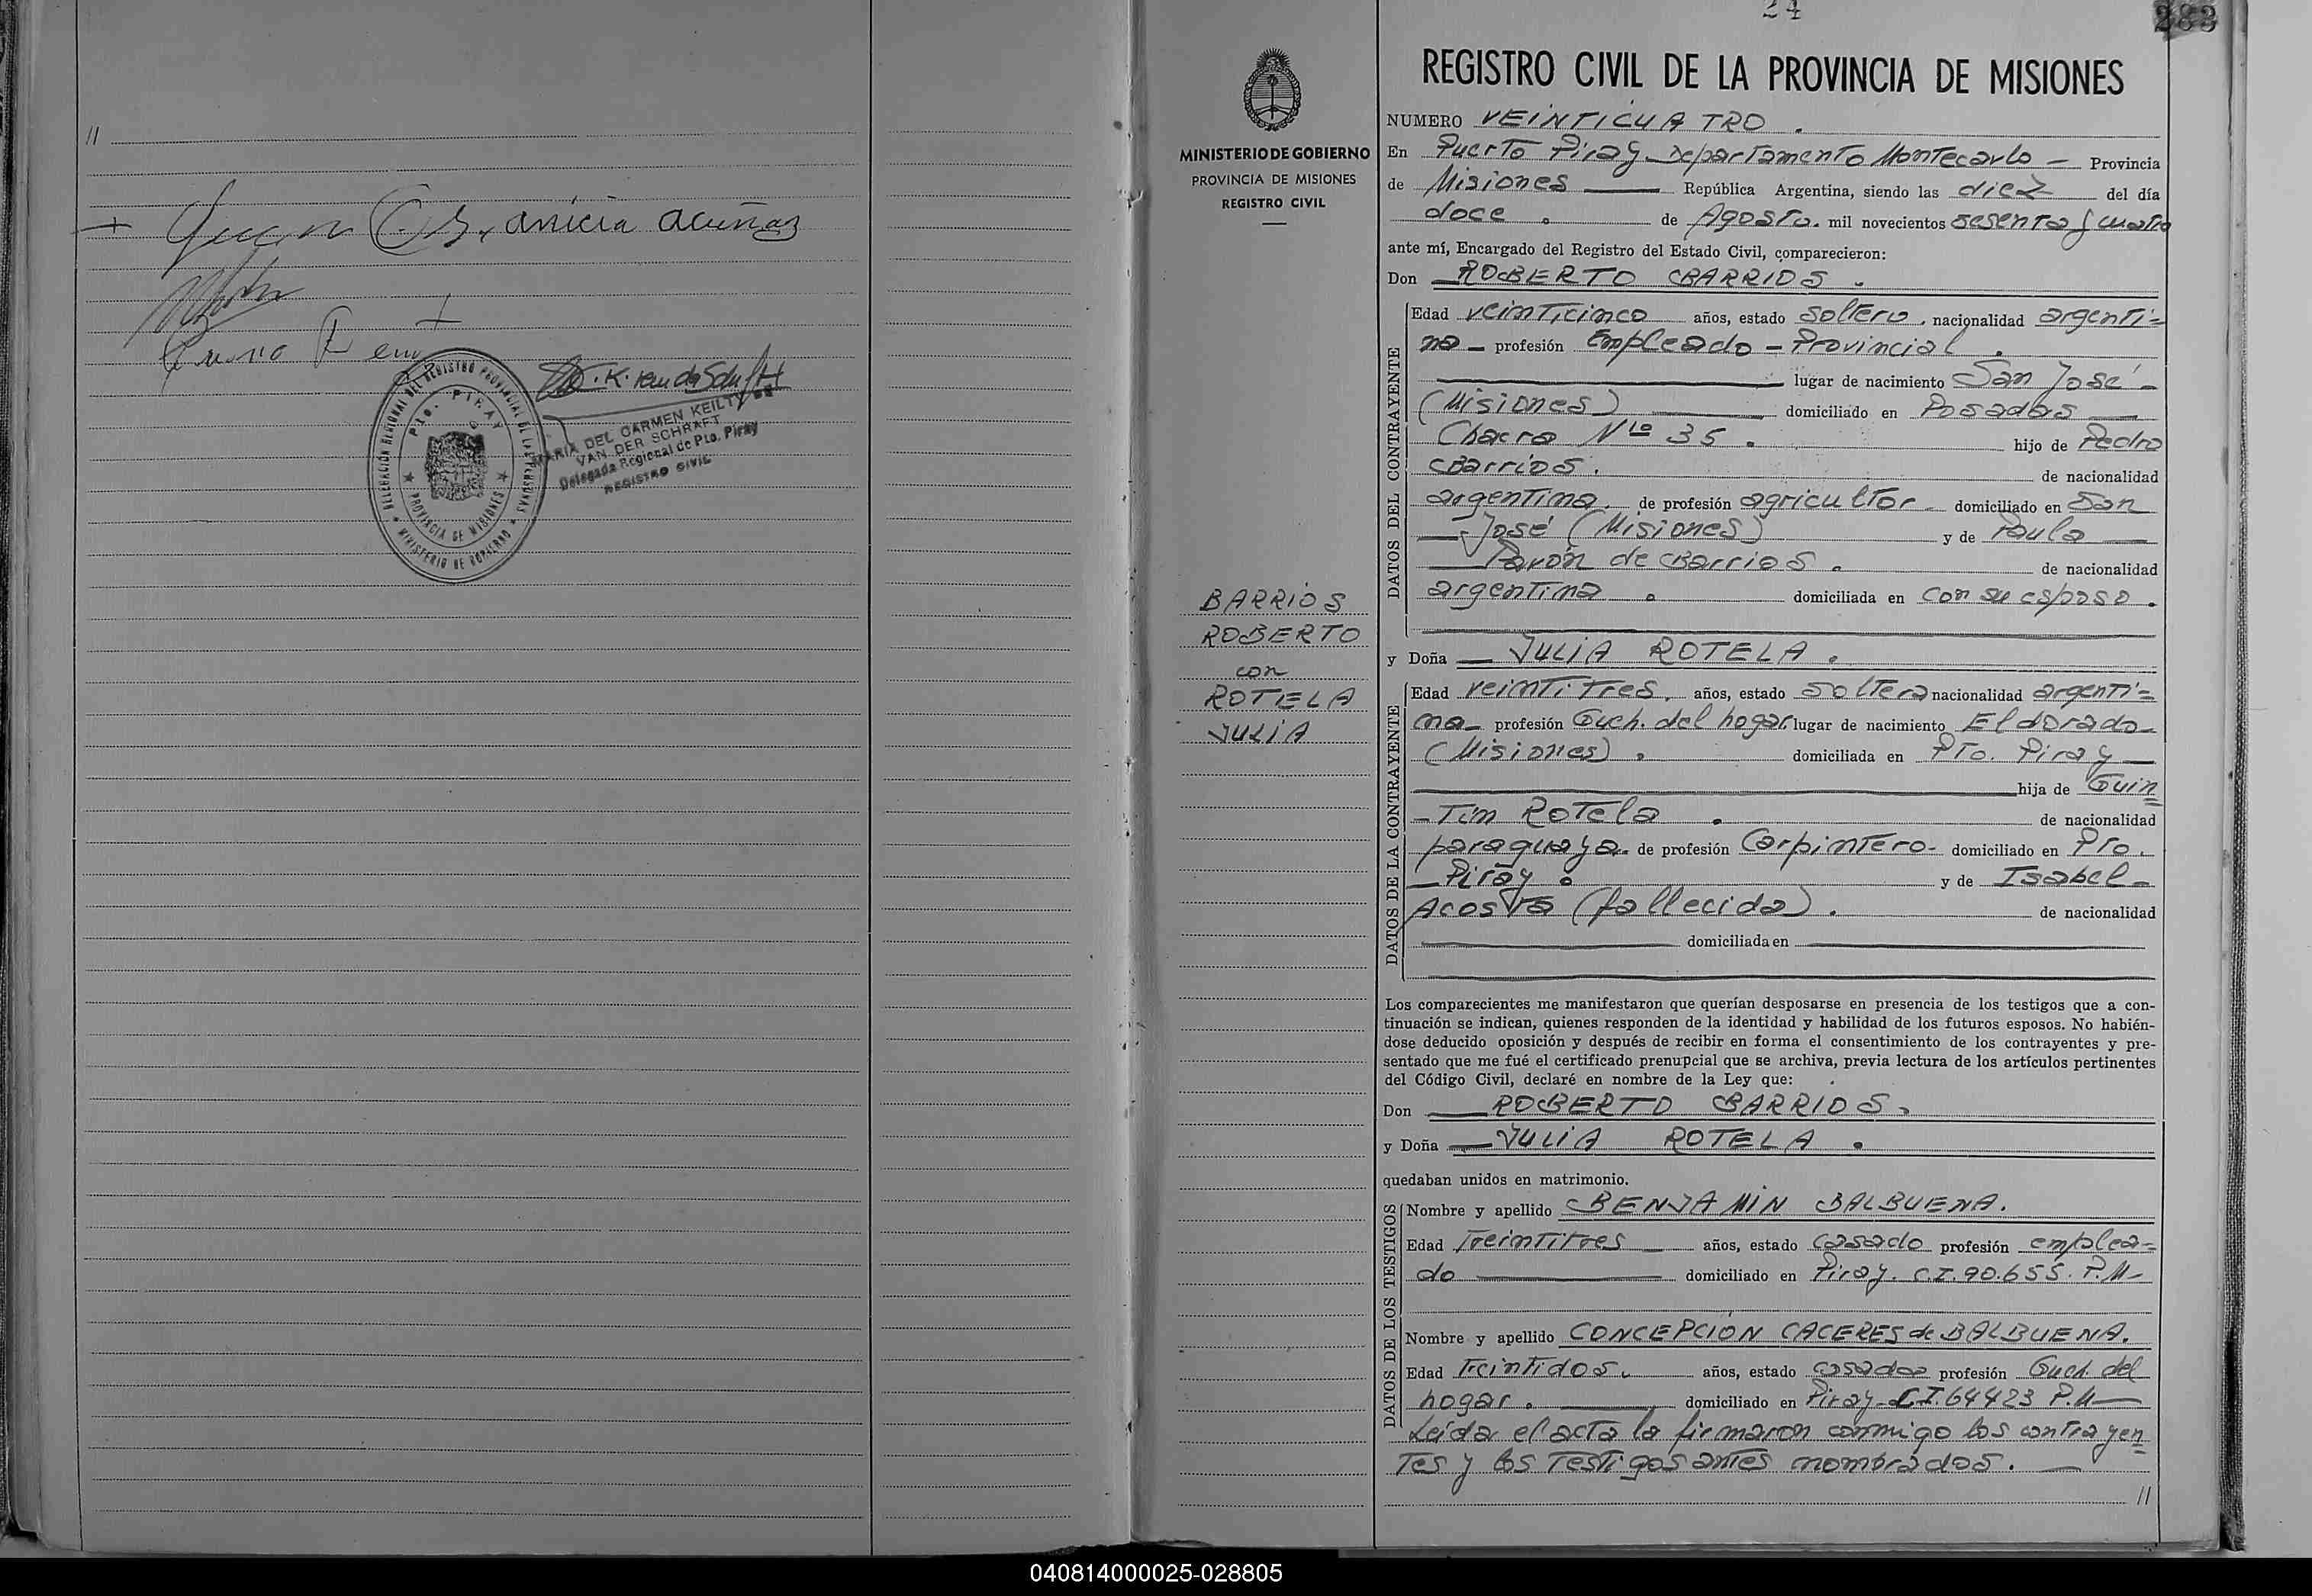 //
anicia acuñas
DELEGACIÓN REGIONAL DEL REGISTRO PROVINCIAL DE LAS PERSONAS
PTO. PIRAY
PROVINCIA DE MISIONES
MINISTERIO DE GOBIERNO
MARIA DEL CARMEN KEILTY DE
VAN DER SCHRAFT
Delegada Regional de Pto. Piray
REGISTRO CIVIL
MINISTERIO DE GOBIERNO
PROVINCIA DE MISIONES
REGISTRO CIVIL
BARRIOS
ROBERTO
con
ROTELA
JULIA
24
283
REGISTRO CIVIL DE LA PROVINCIA DE MISIONES
NUMERO VEINTICUATRO.
En Puerto Piray-Departamento Montecarlo - Provincia
de Misiones República Argentina, siendo las diez del día
doce. de Agosto. mil novecientos sesenta y cuatro
ante mí, Encargado del Registro del Estado Civil, comparecieron:
Don ROBERTO BARRIOS.
DATOS DEL CONTRAYENTE
Edad veinticinco años, estado soltero, nacionalidad argenti=
na - profesión Empleado - Provincial.
lugar de nacimiento San José -
(Misiones) domiciliado en Posadas
Chacra Nº 35. hijo de Pedro
Barrios. de nacionalidad
argentina. de profesión agricultor - domiciliado en San
José (Misiones) y de Paula
Pavón de Barrios. de nacionalidad
argentina. domiciliada en con su esposo.
y Doña JULIA ROTELA.
DATOS DE LA CONTRAYENTE
Edad veintitres. años, estado soltera nacionalidad argenti=
na- profesión Quch. del hogar. lugar de nacimiento Eldorado-
(Misiones). domiciliada en Pto. Piray
hija de Quin
=
-tin Rotela. de nacionalidad
paraguaya- de profesión Carpintero- domiciliado en Pto.
Piray. y de Isabel-
Acosta (fallecida). de nacionalidad
domiciliada en
Los comparecientes me manifestaron que querían desposarse en presencia de los testigos que a con-
tinuación se indican, quienes responden de la identidad y habilidad de los futuros esposos. No habién-
dose deducido oposición y después de recibir en forma el consentimiento de los contrayentes y pre-
sentado que me fué el certificado prenupcial que se archiva, previa lectura de los artículos pertinentes
del Código Civil, declaré en nombre de la Ley que:
Don ROBERTO BARRIOS.
y Doña JULIA ROTELA.
quedaban unidos en matrimonio.
DATOS DE LOS TESTIGOS
Nombre y apellido BENJAMIN BALBUENA.
Edad Treintitres años, estado casado profesión emplea=
do domiciliado en Piray. C.I. 90.655. P.M-
Nombre y apellido CONCEPCION CACERES de BALBUENA.
Edad Treintidos. años, estado casada profesión Quch. del
hogar. domiciliado en Piray-C.I. 64423 P.M
Leída el acta la firmaron conmigo los contrayen
=
tes y los testigos antes nombrados.
//
040814000025-028805